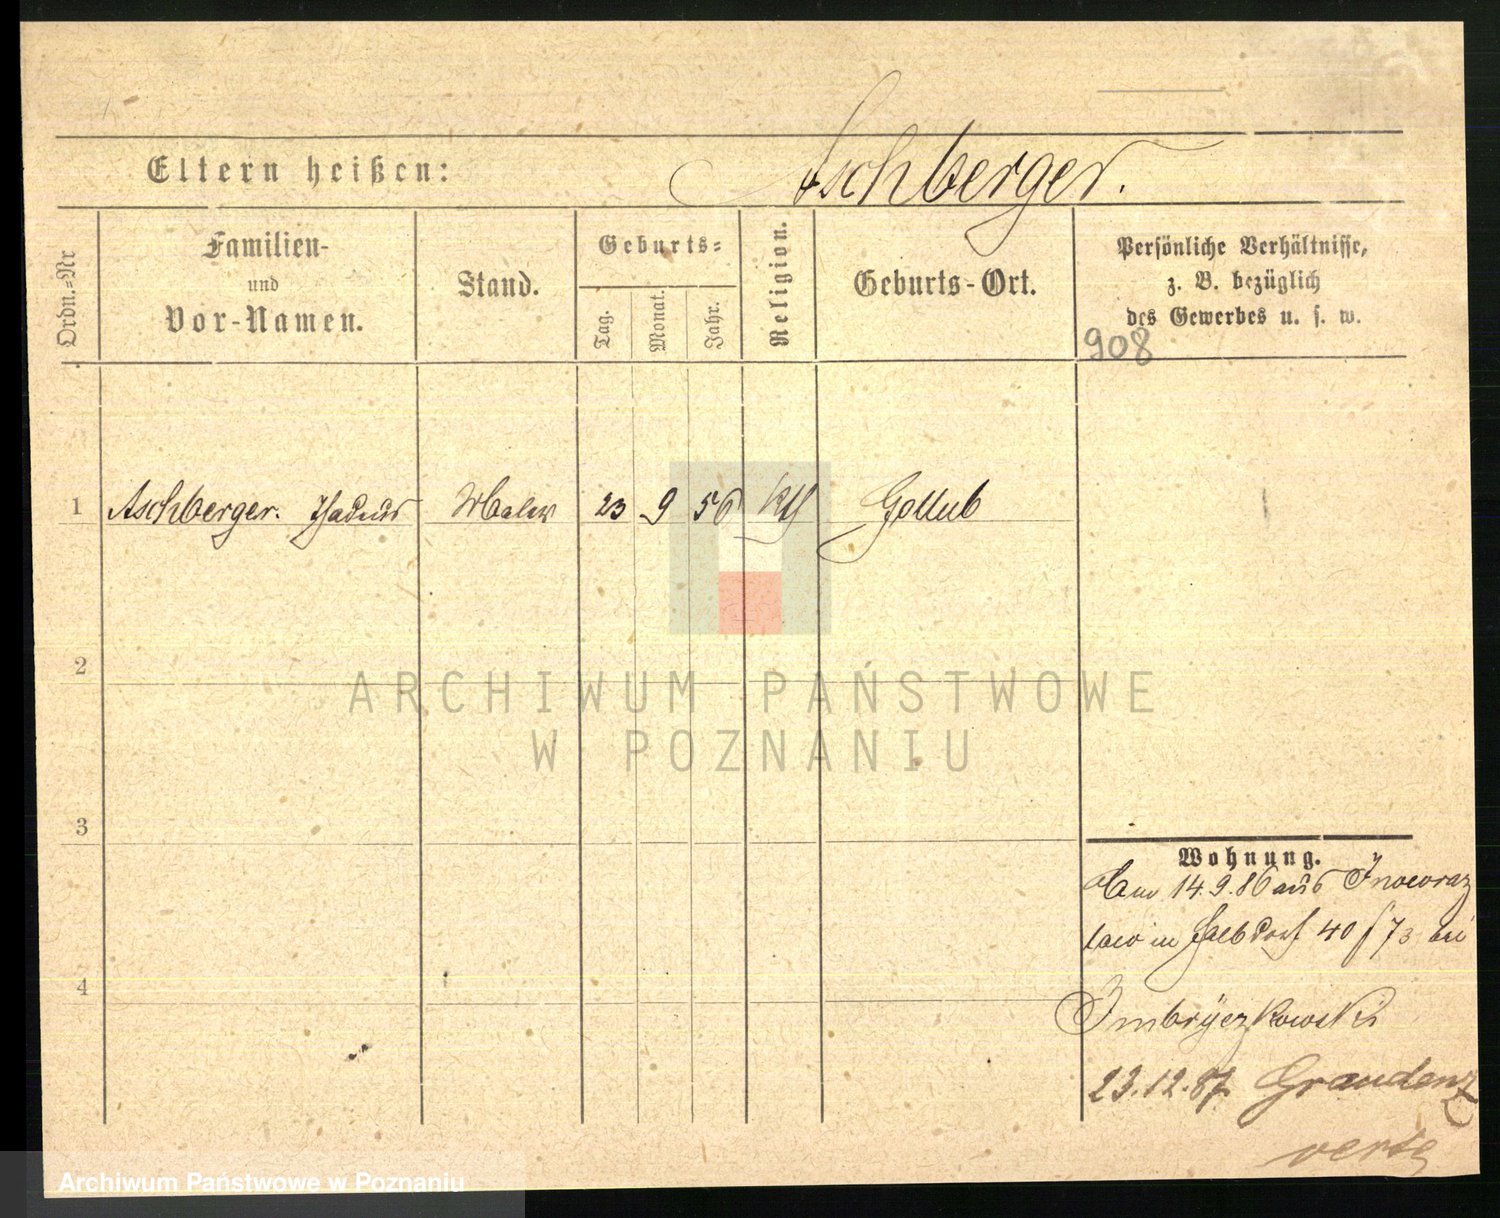 Eltern heißen: Aschberger.
Ordn.=Nr
Familien-
und
Vor-Namen.
Stand.
Geburts=
Tag.
Monat.
Jahr.
Religion.
Geburts-Ort.
Persönliche Verhältnisse,
z. B. bezüglich
des Gewerbes u. s. w.
908
1 Aschberger. Thadeus Maler 23 9 56 kth Gollub
2
3
4
ARCHIWUM PAŃSTWOWE
W POZNANIU
Wohnung.
14.9.86 aus Inowraz
law in 40/73 bei
23.12.87. Graudenz
verte
Archiwum Państwowe w Poznaniu